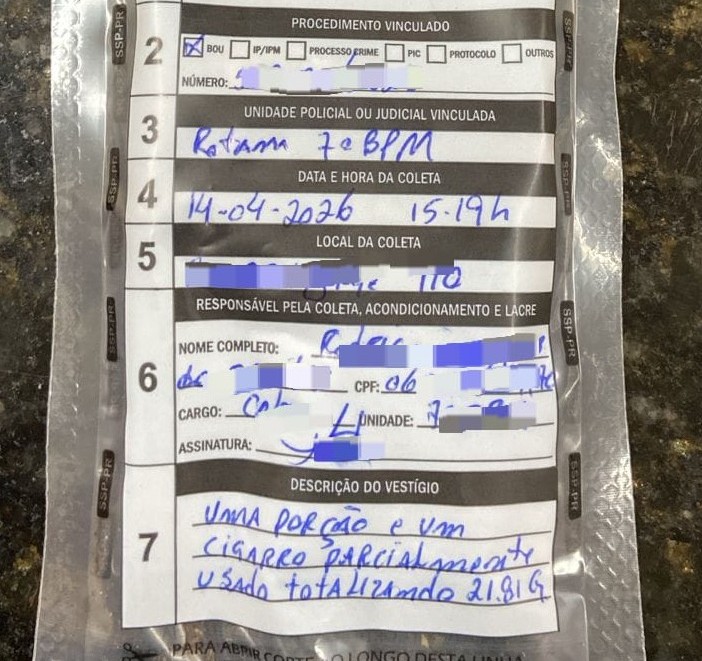 PROCEDIMENTO VINCULADO
2
BOU IP/IPM PROCESSO CRIME PIC PROTOCOLO OUTROS
NÚMERO:
UNIDADE POLICIAL OU JUDICIAL VINCULADA
3
Rotam 7º BPM
DATA E HORA DA COLETA
4
14-04-2026 15-19h
LOCAL DA COLETA
5
110
RESPONSÁVEL PELA COLETA, ACONDICIONAMENTO E LACRE
6
NOME COMPLETO:
CPF: 06
CARGO: UNIDADE:
ASSINATURA:
DESCRIÇÃO DO VESTÍGIO
7
UMA PORÇÃO e UM
CIGARRO PARCIALMENTE
USADO TOTALIZANDO 21.81G
PARA ABRIR CORTE LONGO DESTA LINHA
SSP-PR
SSP-PR
SSP-PR
SSP-PR
SSP-PR
SSP-PR